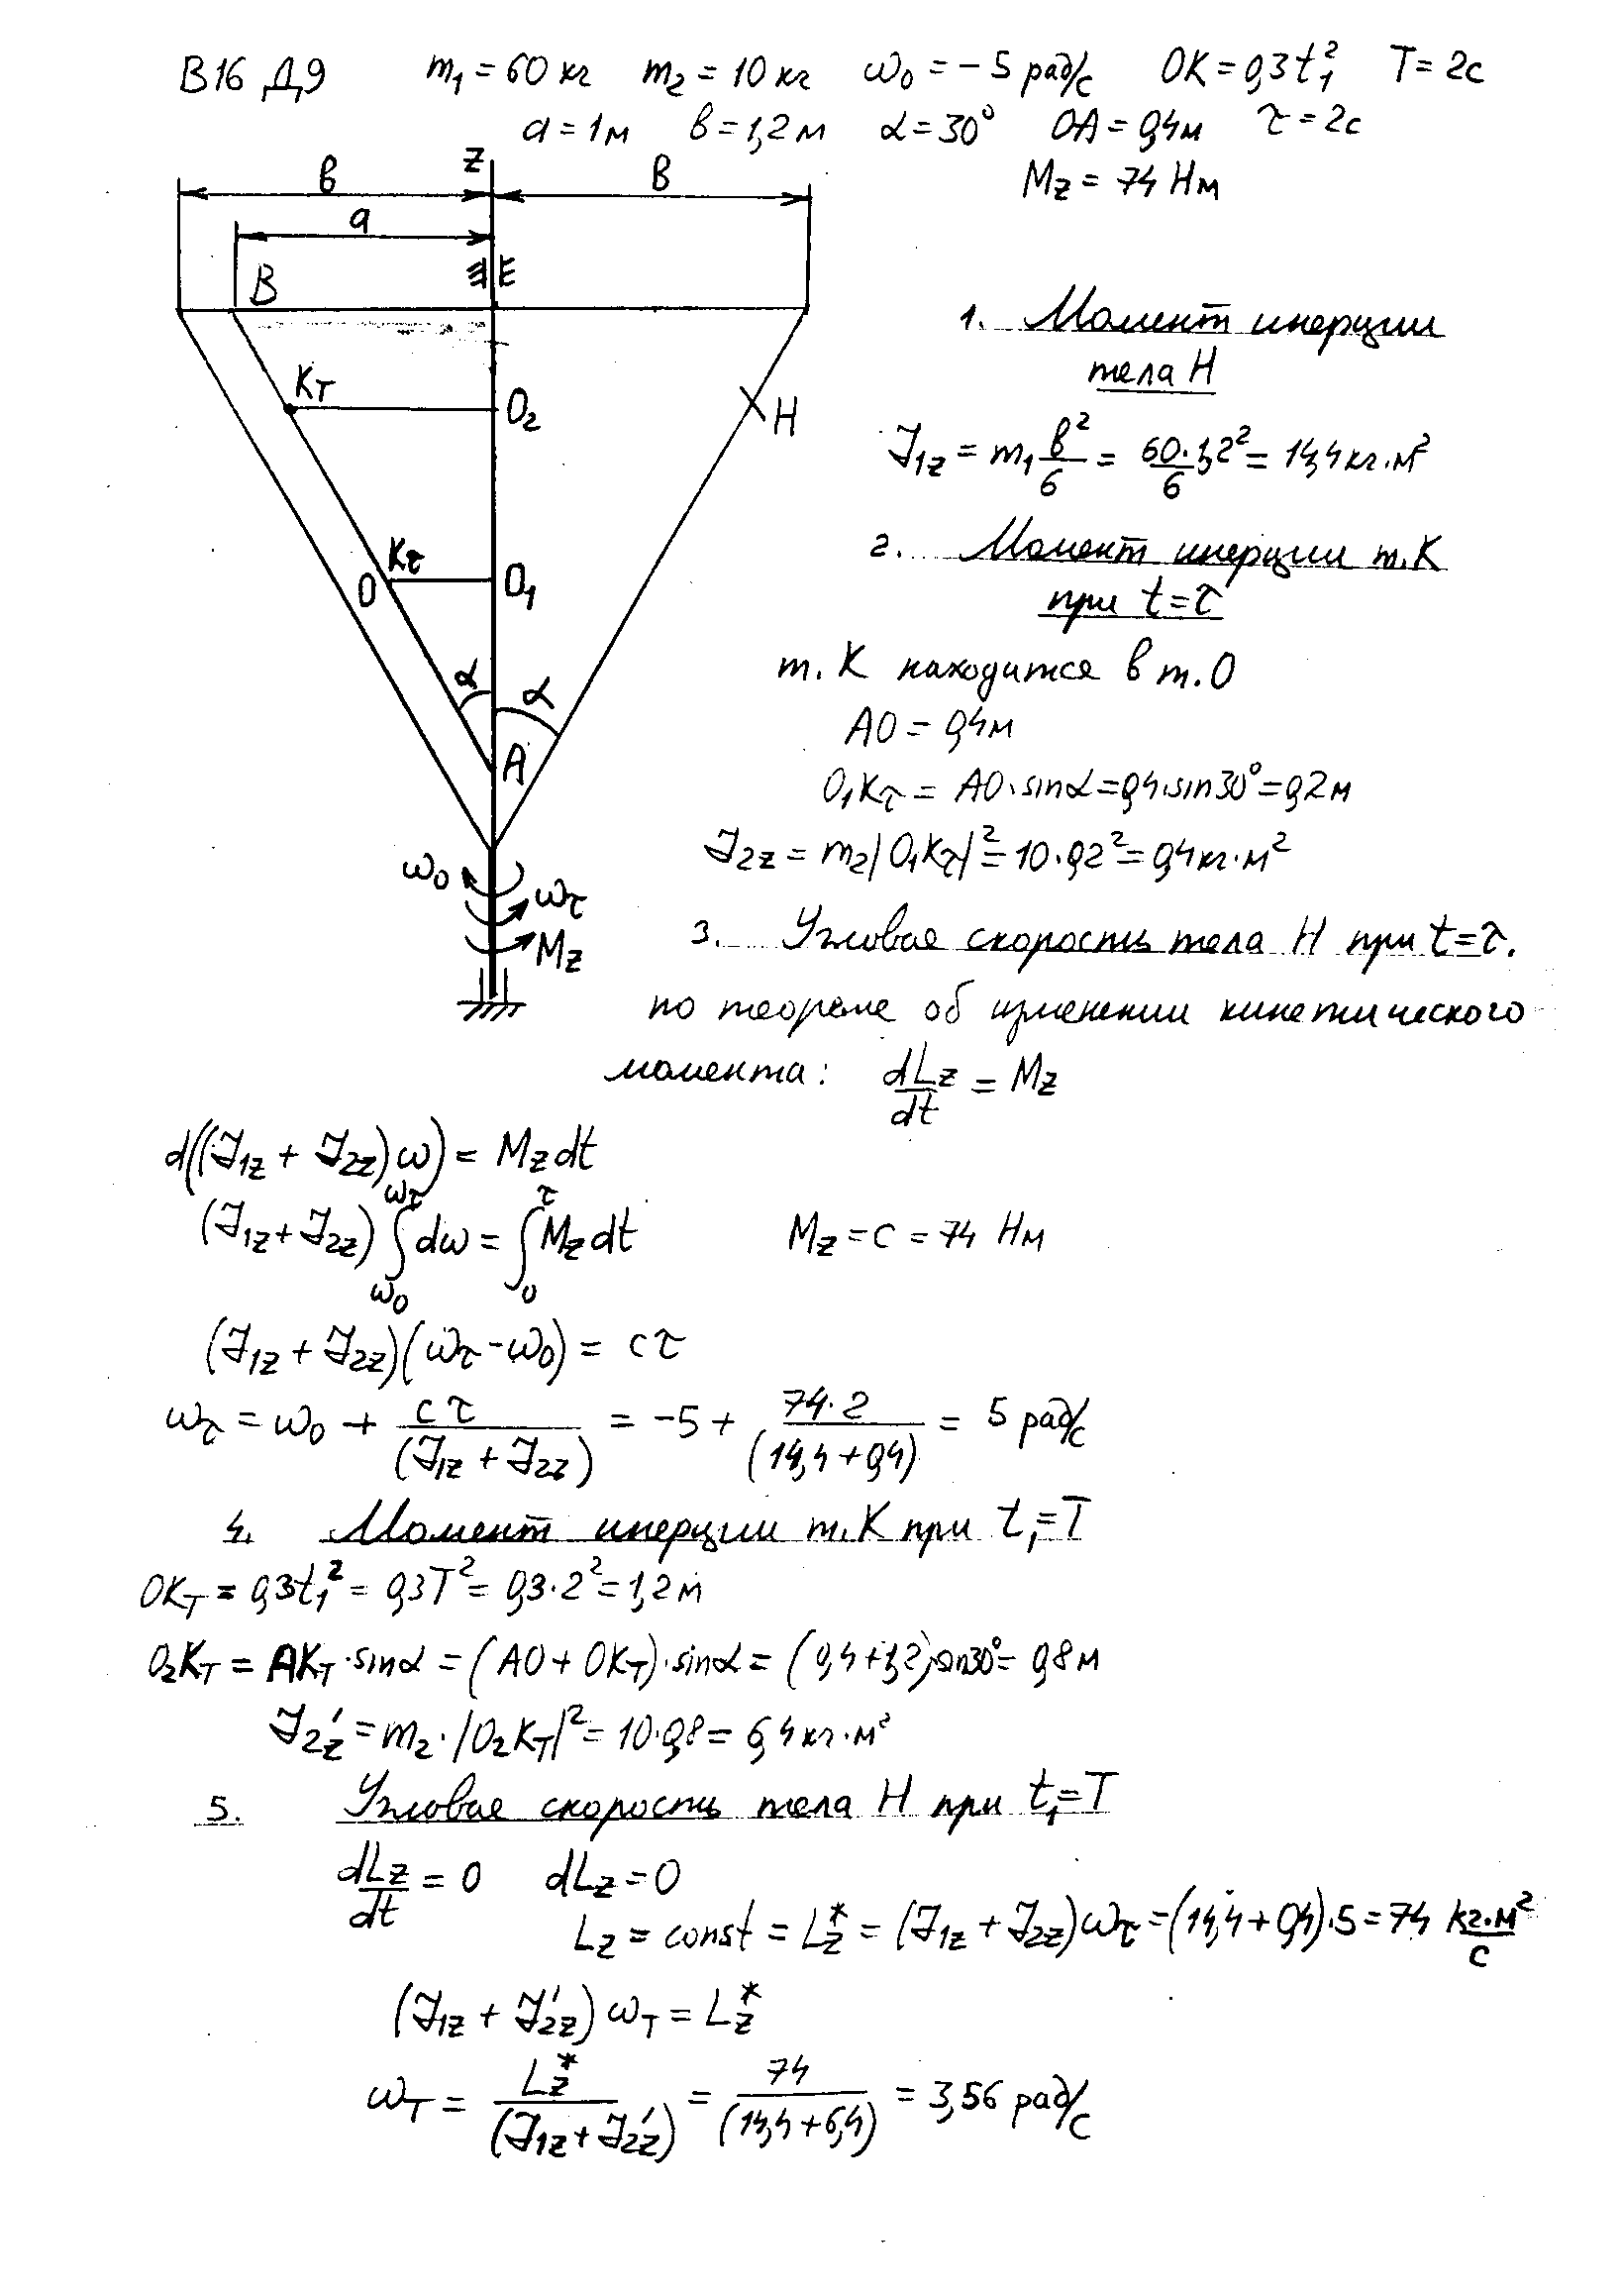 В16 Д9 m₁ = 60 кг m₂ = 10 кг ω₀ = −5 рад/с OK = 0,3t₁² T = 2с
a = 1м в = 1,2 м α = 30° OA = 0,4м τ = 2с
Mz = 74 Нм
z
в в
a
B E
1. Момент инерции
тела H
Kт O₂ H
J₁z = m₁ в²/6 = 60·1,2²/6 = 14,4 кг·м²
2. Момент инерции т.K
при t = τ
Kτ O O₁
т. K находится в т. O
α α
AO = 0,4м
A
O₁Kτ = AO·sinα = 0,4·sin30° = 0,2 м
J₂z = m₂|O₁Kτ|² = 10·0,2² = 0,4 кг·м²
ω₀ ωτ
Mz
3. Угловая скорость тела H при t = τ.
по теореме об изменении кинетического
момента: dLz/dt = Mz
d((J₁z + J₂z)ω) = Mz dt
(J₁z + J₂z) ∫ω₀^ωτ dω = ∫₀^τ Mz dt Mz = c = 74 Нм
(J₁z + J₂z)(ωτ − ω₀) = cτ
ωτ = ω₀ + cτ/(J₁z + J₂z) = −5 + 74·2/(14,4 + 0,4) = 5 рад/с
4. Момент инерции т.K при t₁ = T
OKт = 0,3t₁² = 0,3T² = 0,3·2² = 1,2 м
O₂Kт = AKт·sinα = (AO + OKт)·sinα = (0,4 + 1,2)sin30° = 0,8 м
J₂z′ = m₂·|O₂Kт|² = 10·0,8 = 6,4 кг·м²
5. Угловая скорость тела H при t₁ = T
dLz/dt = 0 dLz = 0
Lz = const = Lz* = (J₁z + J₂z)ωτ = (14,4 + 0,4)·5 = 74 кг·м²/с
(J₁z + J₂z′) ωт = Lz*
ωт = Lz*/(J₁z + J₂z′) = 74/(14,4 + 6,4) = 3,56 рад/с